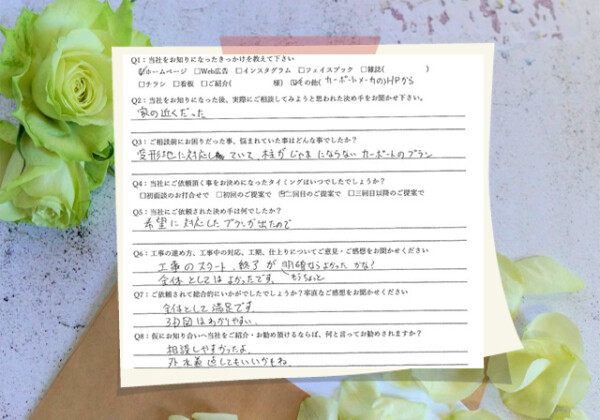 Q1：当社をお知りになったきっかけを教えて下さい
☑ホームページ □Web広告 □インスタグラム □フェイスブック □雑誌( )
□チラシ □看板 □ご紹介( 様) ☑その他( カーポートメーカのHPから
Q2：当社をお知りになった後、実際にご相談してみようと思われた決め手をお聞かせ下さい。
家の近くだった
Q3：ご相談前にお困りだった事、悩まれていた事はどんな事でしたか？
変形地に対応し ていて、柱がじゃまにならないカーポートのプラン
Q4：当社にご依頼頂く事をお決めになったタイミングはいつでしたでしょうか？
□初面談のお打合せで □初回のご提案で ☑二回目のご提案で □三回目以降のご提案で
Q5：当社にご依頼された決め手は何でしたか？
希望に対応したプランが出たので
Q6：工事の進め方、工事中の対応、工期、仕上りについてご意見・ご感想をお聞かせください
工事のスタート、終了が 明確ならよかったかな？
全体としてはよかったです。 もうちょっと
Q7：ご依頼されて総合的にいかがでしたでしょうか？率直なご感想をお聞かせください
全体として満足です。
3D図はわかりやすい。
Q8：仮にお知り合いへ当社をご紹介・お勧め頂けるならば、何と言ってお勧めされますか？
相談しやすかったよ
外構 してもいいかもね。